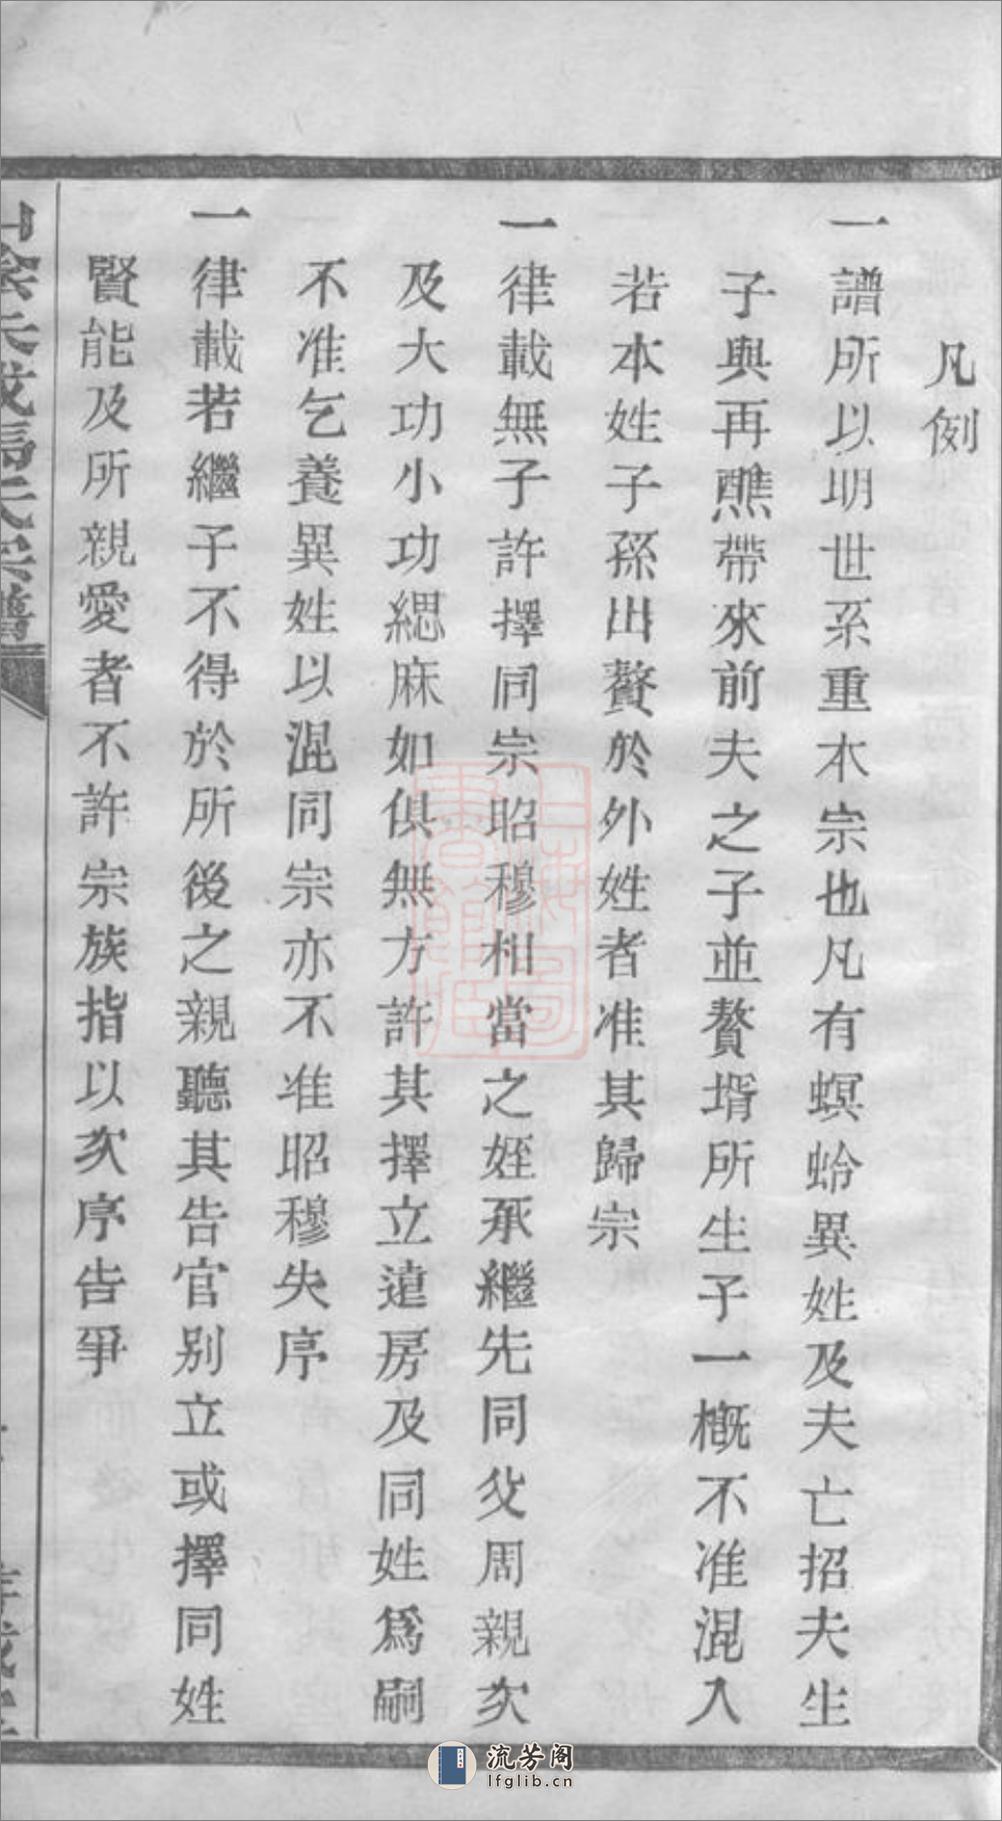 凡例
一譜所以明世系重本宗也凡有螟蛉異姓及夫亡招夫生
子與再醮帶來前夫之子並贅壻所生子一槪不准混入
若本姓子孫出贅於外姓者准其歸宗
一律載無子許擇同宗昭穆相當之姪承繼先同父周親次
及大功小功緦麻如俱無方許其擇立遠房及同姓爲嗣
不准乞養異姓以混同宗亦不准昭穆失序
一律載若繼子不得於所後之親聽其告官別立或擇同姓
賢能及所親愛者不許宗族指以次序告爭
流芳阁
lfglib.cn